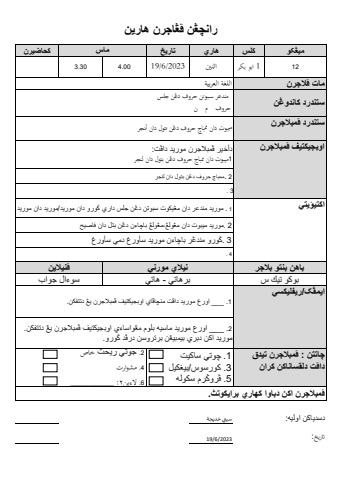 رانچڠن ڤڠاجرن هارين
ميڠݢو كلس هاري تاريخ ماس كحاضيرن
12 1 ابو بكر اثنين 19/6/2023 4.00 3.30
مات ڤلاجرن اللغة العربية
ستندرد كاندوڠن مندڠر سبوتن حروف دڠن جلس
حروف م ن
ستندرد ڤمبلاجرن مڽبوت دان ممباچ حروف دڠن بتول دان لنچر
اوبجيكتيف ڤمبلاجرن دأخير ڤمبلاجرن موريد داڤت:
1مڽبوت دان ممباچ حروف دڠن بتول دان لنچر
2 .ممباچ حروف دڠن بتول دان لنچر
3 .
اكتيۏيتي 1 . موريد مندڠر دان مڠيكوت سبوتن دڠن جلس داري ݢورو دان موريد/موريد دان موريد
2. موريد مڽبوت دان مڠولڠ-مڠولڠ باچاءن دڠن بتل دان فاصيح
3 .ݢورو مندڠر باچاءن موريد سأورڠ دمي سأورڠ
4 .
باهن بنتو بلاجر نيلاي مورني ڤنيلاين
بوكو تيك س برهاتي - هاتي سوءال جواب
ايمڤک/ريفليكسي 1. ___ اورڠ موريد داڤت منچاڤاي اوبجيكتيف ڤمبلاجرن يڠ دتتڤكن.
2. ___ اورڠ موريد ماسيه بلوم مڠواساءي اوبجيكتيف ڤمبلاجرن يڠ دتتڤكن.
موريد اكن دبري بيمبيڠن برتروسن درڤد ݢورو.
چاتتن : ڤمبلاجرن تيدق داڤت دلقساناكن كران
1. چوتي ساكيت 2. چوتي ريحت خاص
3. كورسوس/بيڠكيل 4. مشوارت
5. ڤروݢرم سكوله 6. لاءين٢:
ڤمبلاجرن اكن دباوا كهاري برايكوتڽ.
دسدياكن اوليه: سيتي خديجة
تاريخ: 19/6/2023